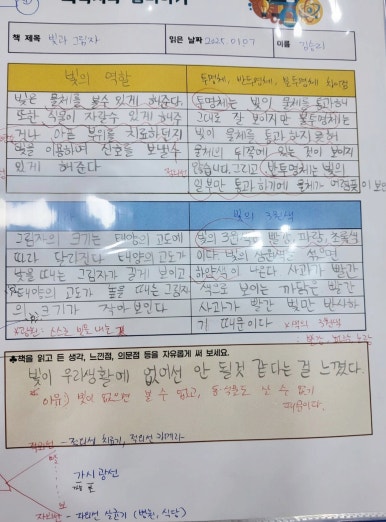 책 제목 빛과 그림자
읽은 날짜 2025.01.07
이름
빛의 역할
투명체, 반투명체, 불투명체 차이점
빛은 물체를 볼수 있게 해준다.
또한 식물이 자랄수 있게 해주
거나 아픈 부위를 치료하던지
빛을 이용하여 신호를 보낼수
있게 해준다
적외선
투명체는 빛이 물체를 통과해
그대로 잘 보이지만 불투명체는
빛이 물체를 통과 하지 못해
물체의 뒤쪽에 있는 것이 보이지
않습니다. 그리고 반투명체는 빛의
일부만 통과 하기에 물체가
그림자의 크기는 태양의 고도에
따라 달라진다 태양의 고도가
낮을 때는 그림자가 길게 보이고
태양의 고도가 높을 때는 그림자
의 크기가 작아 보인다
빛의 3원색
빛의 3원색은 빨강, 파랑, 초록색
이다 빛의 삼원색은 섞으면
하얀색이 나온다. 사과가 빨간
색으로 보이는 까닭은 빨간
사과가 빨간 빛만 반사하
기 때문이다
♣책을 읽고 든 생각, 느낀점, 의문점 등을 자유롭게 써 보세요.
빛이 우리생활에 없어선 안 될것 같다는 걸 느꼈다.
이유) 빛이 없으면 볼 수 없고, 동식물도 살 수 없기
때문이다.
적외선 - 적외선 치료기, 적외선 카메라
빨
가시광선
보
자외선 - 자외선 살균기 (병원, 식당)